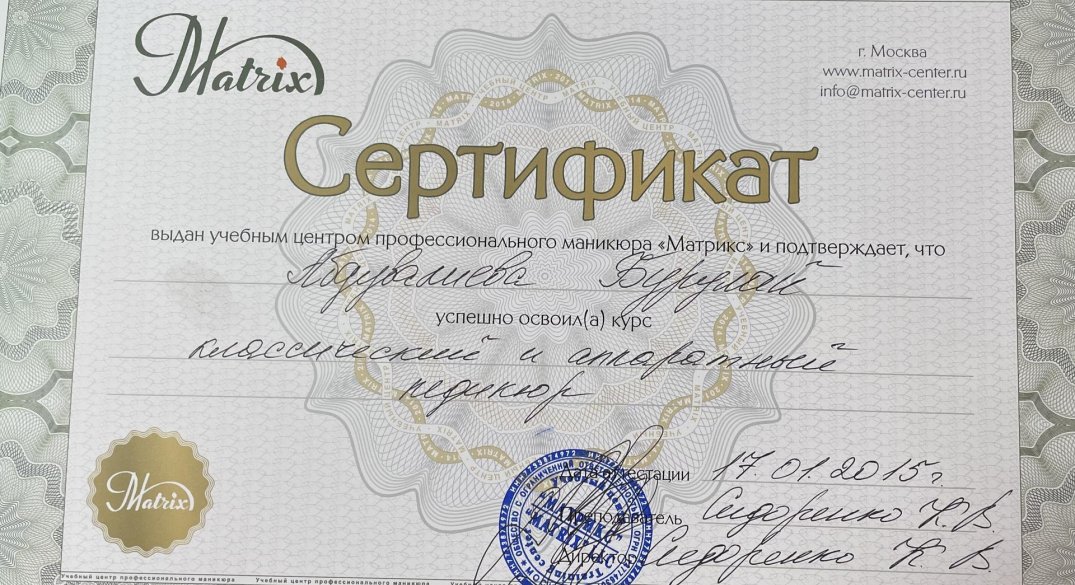 Matrix
г. Москва
www.matrix-center.ru
info@matrix-center.ru
Сертификат
выдан учебным центром профессионального маникюра «Матрикс» и подтверждает, что
Абдувалиева Бурулай
успешно освоил(а) курс
классический и аппаратный
педикюр
Дата аттестации 17.01.2015 г.
Преподаватель Сидоренко К. В.
Директор Сидоренко К. В.
Matrix
Учебный центр профессионального маникюра Учебный центр профессионального маникюра